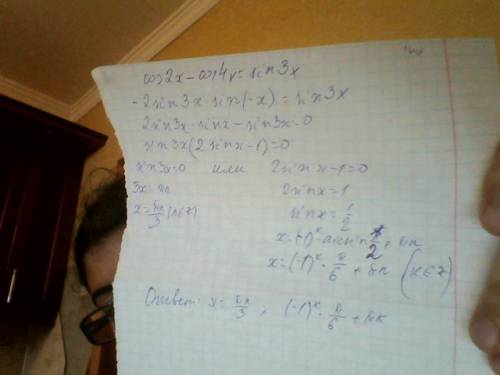 cos2x - cos4x = sin3x
-2sin3x·sin(-x) = sin3x
2sin3x·sinx - sin3x = 0
sin3x(2sinx-1)=0
sin3x=0 или 2sinx-1=0
3x=πn 2sinx=1
x=πn/3 (n∈Z) sinx=1/2
x=(-1)^k·arcsin 1/2 + πn
x=(-1)^k·π/6 + πn (k∈Z)
Ответ: x=πn/3 ; (-1)^k·π/6 + πk